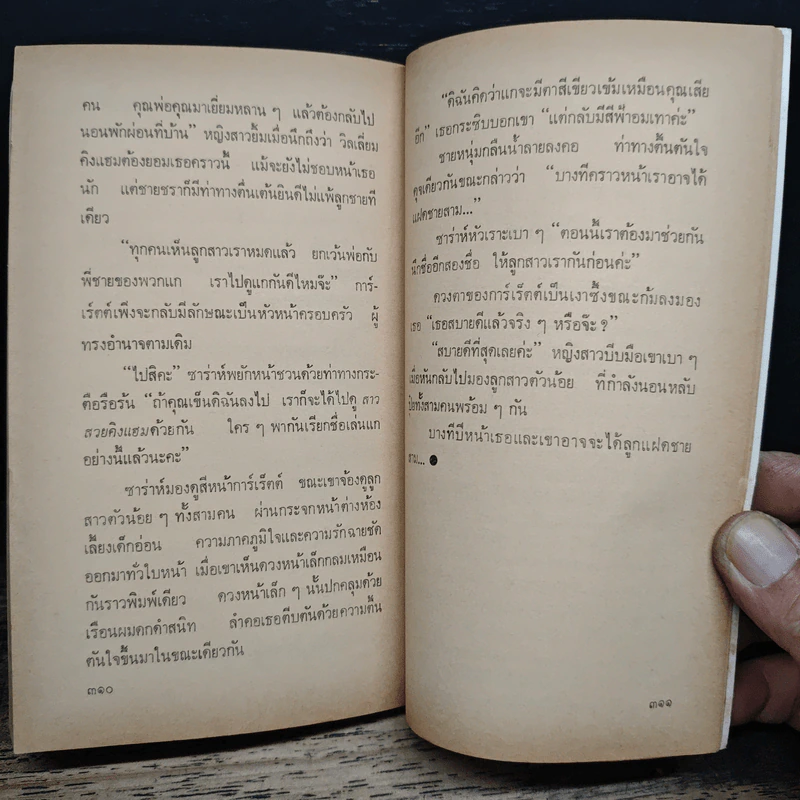 คน คุณพ่อคุณมาเยี่ยมหลาน ๆ แล้วต้องกลับไป
นอนพักผ่อนที่บ้าน” หญิงสาวยิ้มเมื่อนึกถึงว่า วิลเลี่ยม
คิงแฮมต้องยอมเธอคราวนี้ แม้จะยังไม่ชอบหน้าเธอ
นัก แต่ชายชราก็มีท่าทางตื่นเต้นยินดีไม่แพ้ลูกชายที
เดียว
“ทุกคนเห็นลูกสาวเราหมดแล้ว ยกเว้นพ่อกับ
พี่ชายของพวกแก เราไปดูแกกันดีไหมจ๊ะ” การ์-
เร็ตต์เพิ่งจะกลับมีลักษณะเป็นหัวหน้าครอบครัว ผู้
ทรงอำนาจตามเดิม
“ไปสิคะ” ซาร่าห์พยักหน้าชวนด้วยท่าทางกระ-
ตือรือร้น “ถ้าคุณเข็นดิฉันลงไป เราก็จะได้ไปดู สาว
สวยคิงแฮมด้วยกัน ใคร ๆ พากันเรียกชื่อเล่นแก
อย่างนี้แล้วนะคะ”
ซาร่าห์มองดูสีหน้าการ์เร็ตต์ ขณะเขาจ้องดูลูก
สาวตัวน้อย ๆ ทั้งสามคน ผ่านกระจกหน้าต่างห้อง
เลี้ยงเด็กอ่อน ความภาคภูมิใจและความรักฉายชัด
ออกมาทั่วใบหน้า เมื่อเขาเห็นดวงหน้าเล็กกลมเหมือน
กันราวพิมพ์เดียว ดวงหน้าเล็ก ๆ นั้นปกคลุมด้วย
เรือนผมดกดำสนิท ลำคอเธอตีบตันด้วยความตื้น
ตันใจขึ้นมาในขณะเดียวกัน
๓๑๐
“ดิฉันคิดว่าแกจะมีตาสีเขียวเข้มเหมือนคุณเสีย
อีก” เธอกระซิบบอกเขา “แต่กลับมีสีฟ้าอมเทาค่ะ”
ชายหนุ่มกลืนน้ำลายลงคอ ท่าทางตื้นตันใจ
ดุจเดียวกันขณะกล่าวว่า “บางทีคราวหน้าเราอาจได้
แฝดชายสาม...”
ซาร่าห์หัวเราะเบา ๆ “ตอนนี้เราต้องมาช่วยกัน
นึกชื่ออีกสองชื่อ ให้ลูกสาวเรากันก่อนค่ะ”
ดวงตาของการ์เร็ตต์เป็นเงาซึ้งขณะก้มลงมอง
เธอ “เธอสบายดีแล้วจริง ๆ หรือจ๊ะ ?”
“สบายดีที่สุดเลยค่ะ” หญิงสาวบีบมือเขาเบา ๆ
เมื่อหันกลับไปมองลูกสาวตัวน้อย ที่กำลังนอนหลับ
ปุ๋ยทั้งสามคนพร้อม ๆ กัน
บางทีปีหน้าเธอและเขาอาจจะได้ลูกแฝดชาย
สาม... ●
๓๑๑